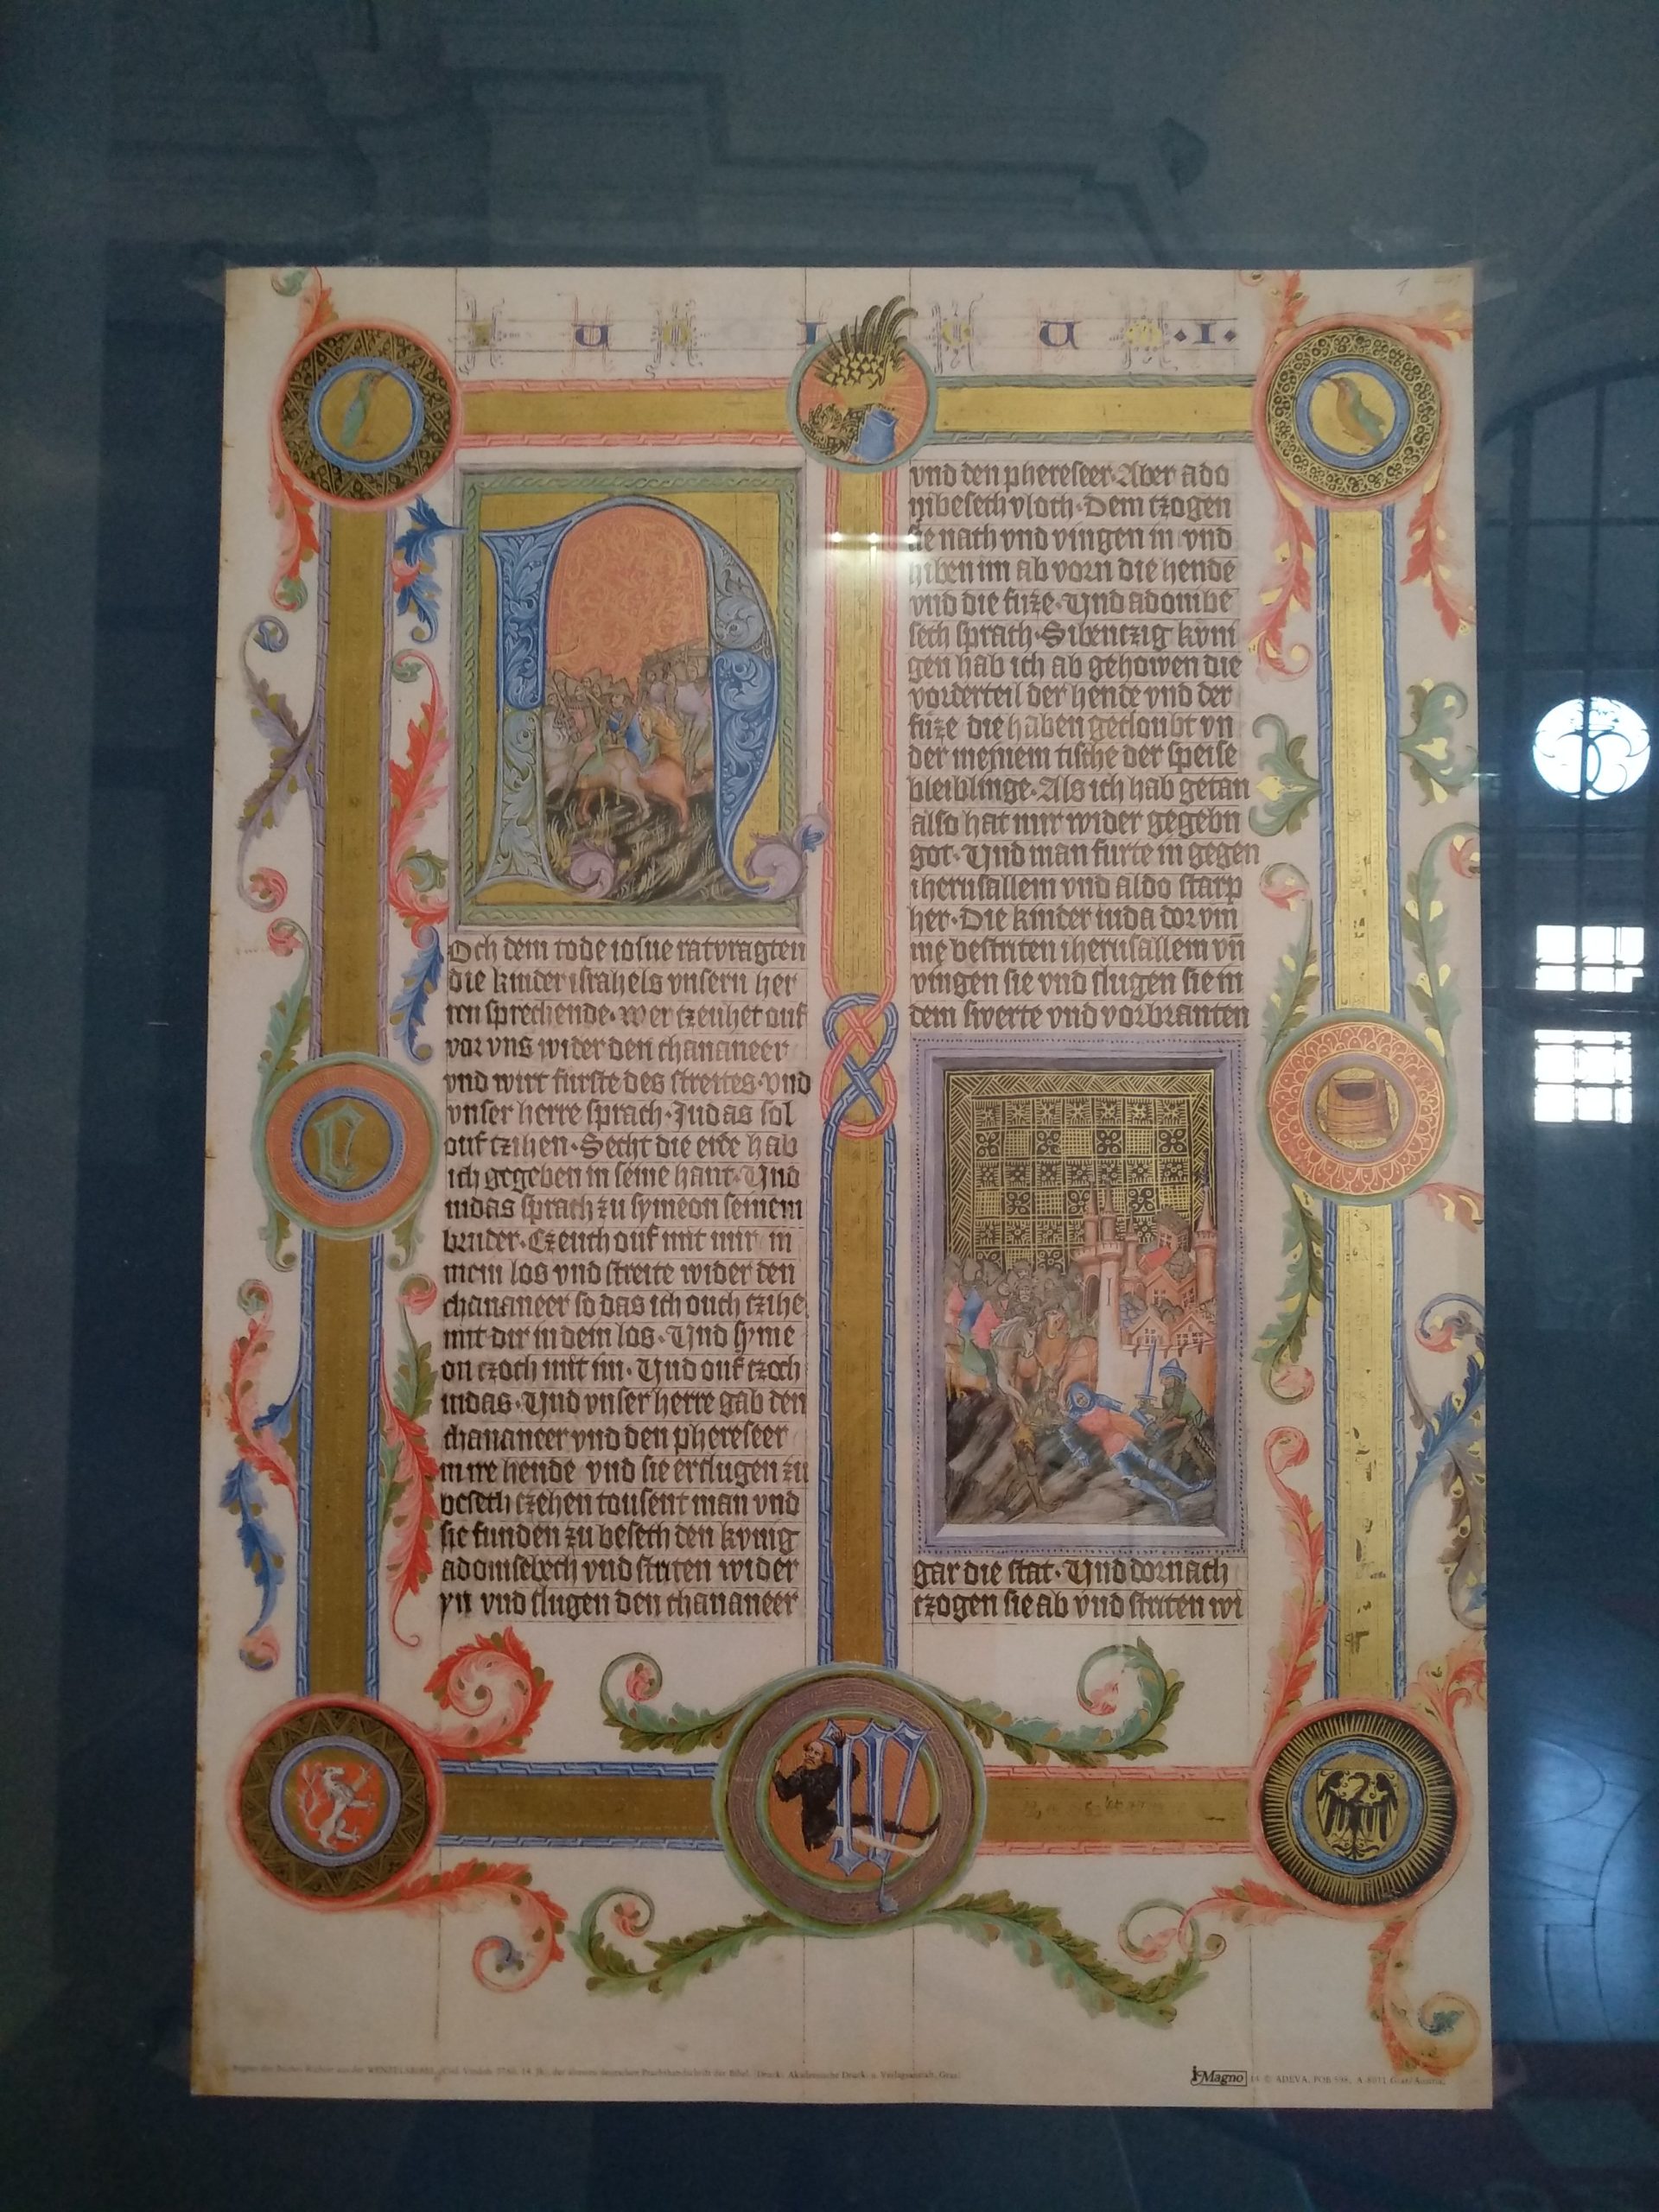 U I U · I ·
N
Och dem tode iosue ratvragten
die kinder israhels vnsern her
ren sprechende · wer tzeuhet ouf
vor vns wider den chananeer
vnd wirt furste des streites · vnd
vnser herre sprach · Judas sol
ouf tzihen · Secht die erde hab
ich gegeben in seine hant · Und
iudas sprach zu symeon seinem
bruder · Czeuch ouf mit mir in
mein los vnd streite wider den
chananeer so das ich ouch tzihe
mit dir in dein los · Und syme
on tzoch mit im · Und ouf tzoch
iudas · Und vnser herre gab den
chananeer vnd den phereseer
in ire hende vnd sie erslugen zu
beseth tzehen tousent man vnd
sie funden zu beseth den kvnig
adonisebech vnd striten wider
yn vnd slugen den chananeer
vnd den phereseer · Aber ado
nibeseth vloch · Dem tzogen
sie nach vnd vingen in vnd
hiben im ab vorn die hende
vnd die fuze · Und adonibe
seth sprach · Sibentzig kvni
gen hab ich ab gehowen die
vorderteil der hende vnd der
fuze die haben gecloubt vn
der meinem tische der speise
bleiblinge · Als ich hab getan
also hat mir wider gegebn
got · Und man furte in gegen
iherusallem vnd aldo starp
her · Die kinder iuda dor vm
me bestriten iherusallem vn̄
vingen sie vnd slugen sie in
dem swerte vnd vorbranten
gar die stat · Und dornach
tzogen sie ab vnd striten wi
Beginn des Buches Richter aus der WENZELSBIBEL (Cod. Vindob. 2760, 14. Jh.), der ältesten deutschen Prachthandschrift der Bibel. Druck: Akademische Druck- u. Verlagsanstalt, Graz
i-Magno © ADEVA, POB 598, A-8011 Graz/Austria